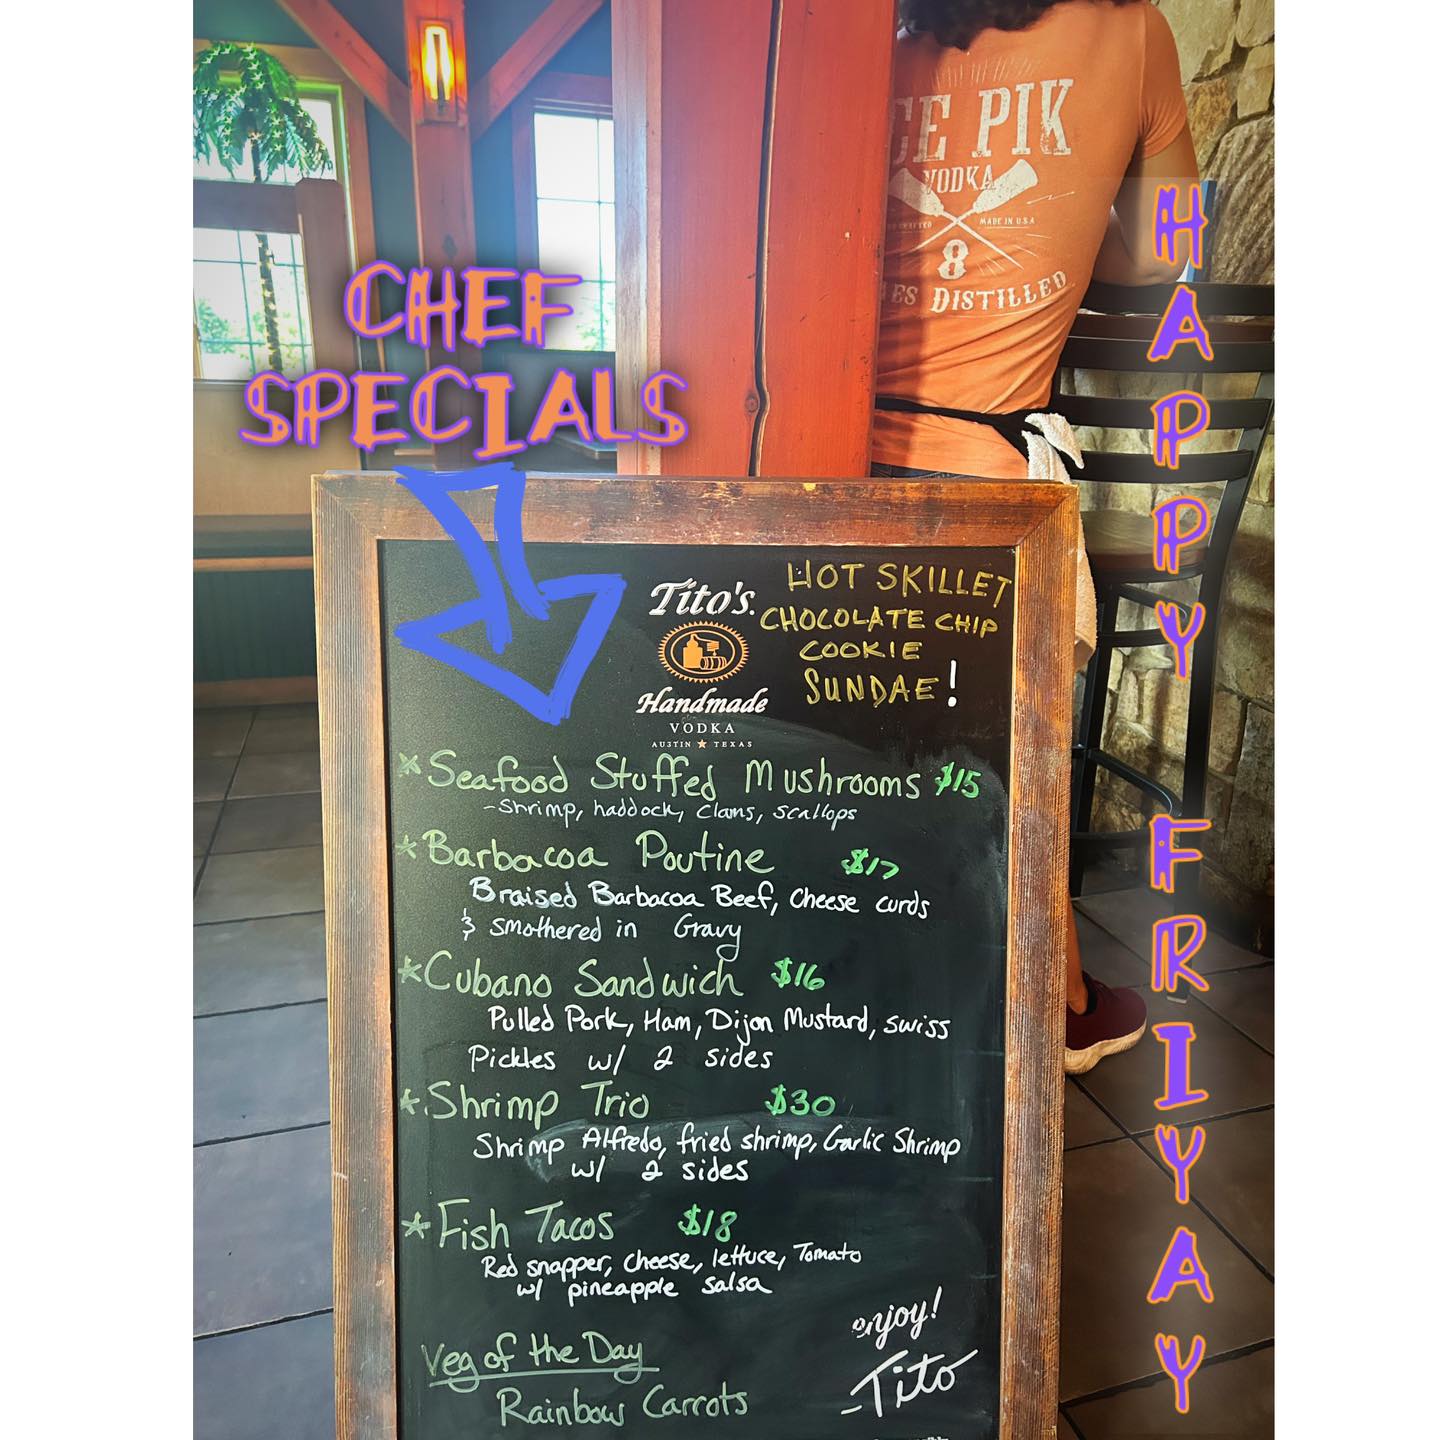 CE PIK
VODKA
CRAFTED
MADE IN U.S.A
8
ES DISTILLED
CHEF
SPECIALS
HAPPY FRIYAY
HOT SKILLET
CHOCOLATE CHIP
COOKIE
SUNDAE!
Tito's
Handmade
VODKA
AUSTIN ★ TEXAS
*Seafood Stuffed Mushrooms $15
-Shrimp, haddock, clams, scallops
*Barbacoa Poutine $17
Braised Barbacoa Beef, Cheese curds
& smothered in Gravy
*Cubano Sandwich $16
Pulled Pork, Ham, Dijon Mustard, swiss
Pickles w/ 2 sides
*Shrimp Trio $30
Shrimp Alfredo, fried shrimp, Garlic Shrimp
w/ 2 sides
*Fish Tacos $18
Red snapper, cheese, lettuce, Tomato
w/ pineapple salsa
Veg of the Day
Rainbow Carrots
enjoy!
-Tito